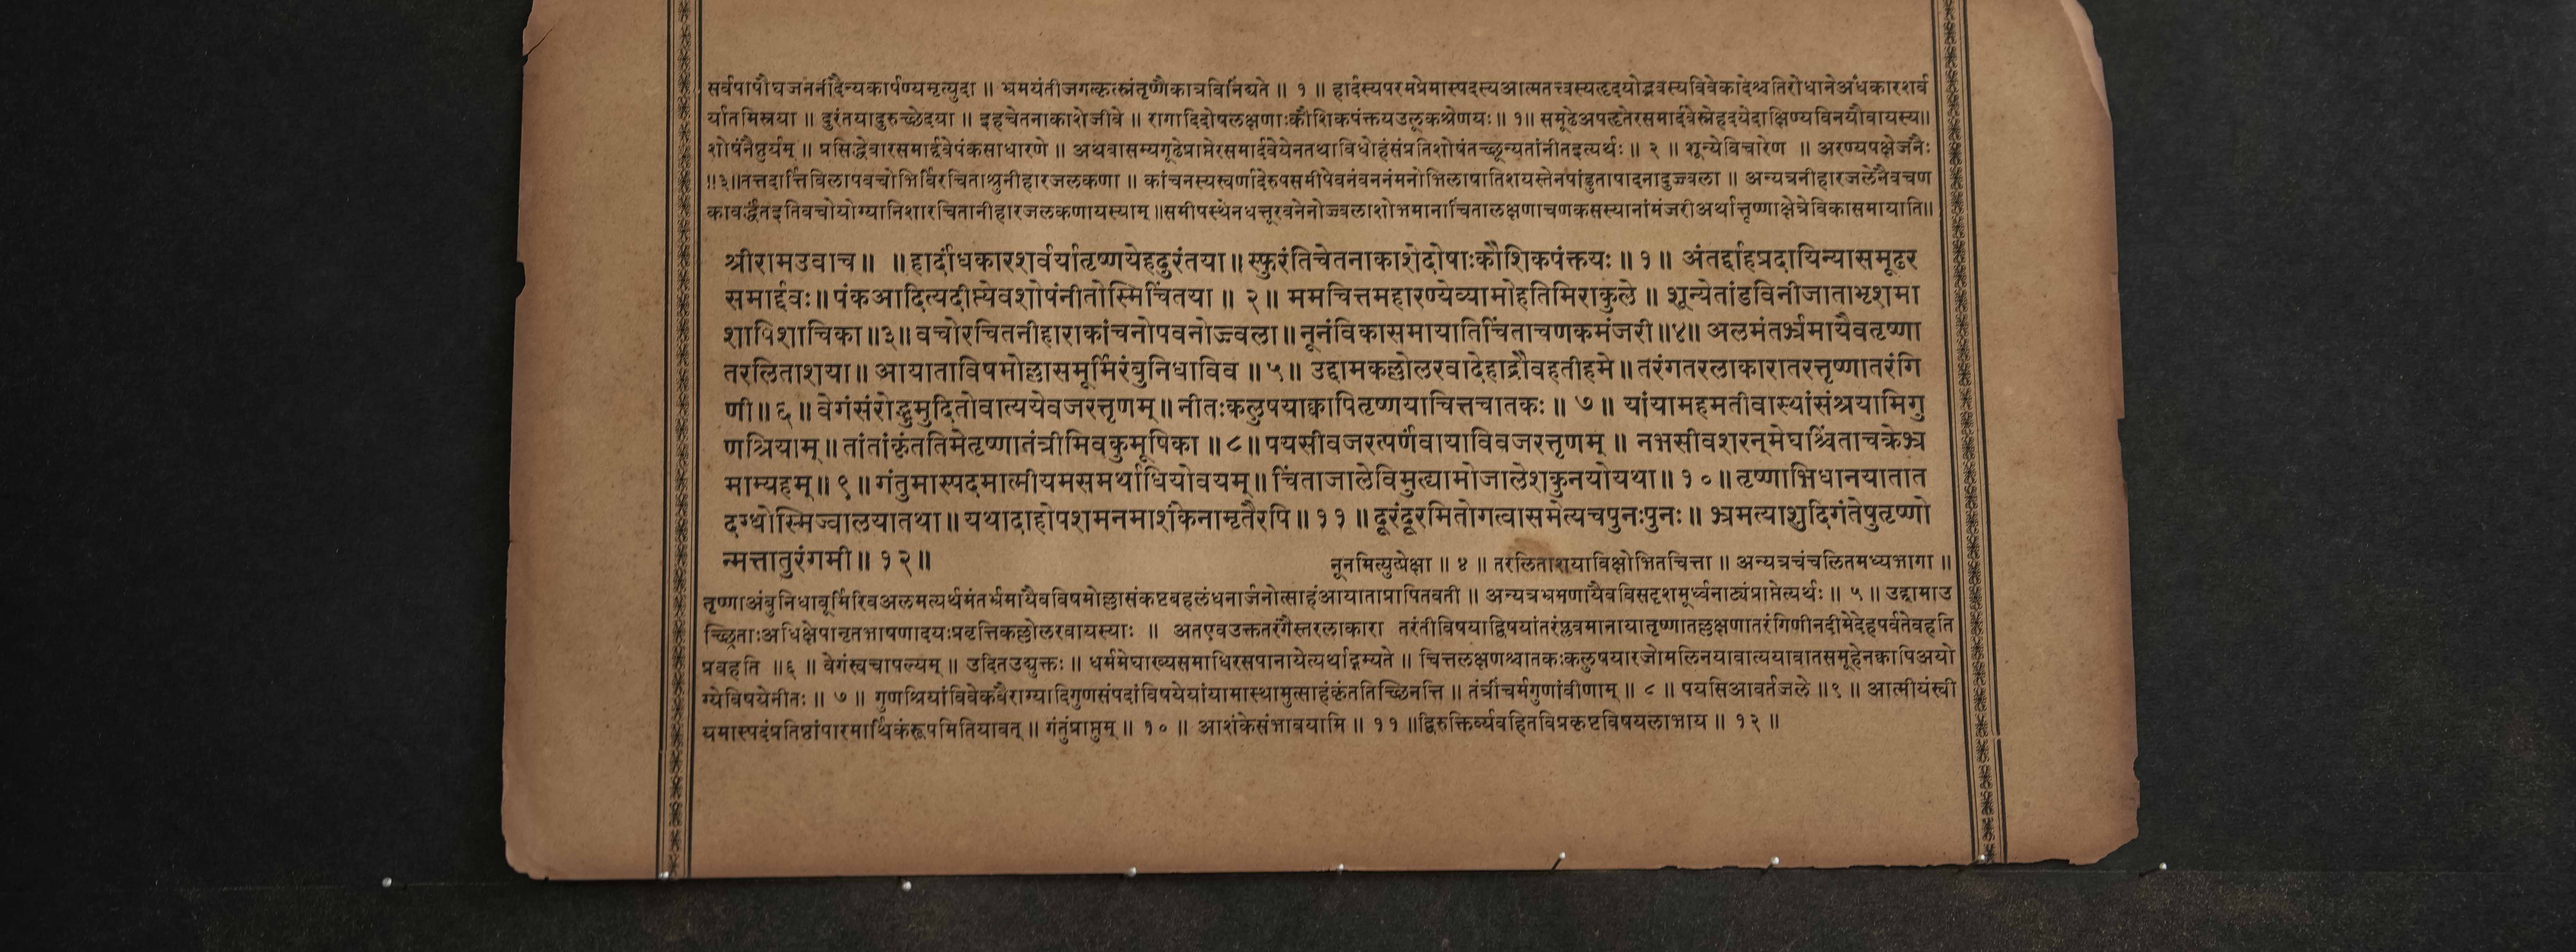 सर्वपापौघजननीदैन्यकार्पण्यमृत्युदा ॥ भ्रमयंतीजगत्कृत्स्नंतृष्णैकात्रविनिंद्यते ॥ १ ॥ हार्दस्यपरमप्रेमास्पदस्यआत्मतत्त्वस्यहृदयोद्भवस्यविवेकादेश्चतिरोधानेअंधकारशर्व
र्यातमिस्रया ॥ दुरंतयादुरुच्छेदया ॥ इहचेतनाकाशेजीवे ॥ रागादिदोषलक्षणाःकौशिकपंक्तयउलूकश्रेणयः ॥ १॥ समूढेअपहृतेरसमार्दवेस्नेहदयेदाक्षिण्यविनयौवायस्य॥
शोषंनैष्ठुर्यम् ॥ प्रसिद्धेवारसमार्द्दवेपंकसाधारणे ॥ अथवासम्यगूढेप्राप्तेरसमार्दवेयेनतथाविधोहंसंप्रतिशोषंतच्छून्यतांनीतइत्यर्थः ॥ २ ॥ शून्येविचारेण ॥ अरण्यपक्षेजनैः
॥३॥तत्तदार्त्तिविलापवचोभिर्विरचिताश्रुनीहारजलकणा ॥ कांचनस्यस्वर्णादेरुपसमीपेवनंवननंमनोभिलाषातिशयस्तेनपांडुतापादनादुज्ज्वला ॥ अन्यत्रनीहारजलेनैवचण
कावर्द्धंतइतिवचोयोग्यानिशारचितानीहारजलकणायस्याम् ॥समीपस्थेनधत्तूरवनेनोज्ज्वलाशोभमानाचिंतालक्षणाचणकसस्यानांमंजरीअर्थात्तृष्णाक्षेत्रेविकासमायाति॥
श्रीरामउवाच ॥ ॥ हार्दांधकारशर्वर्यातृष्णयेहदुरंतया ॥ स्फुरंतिचेतनाकाशेदोषाःकौशिकपंक्तयः ॥ १ ॥ अंतर्द्दाहप्रदायिन्यासमूढर
समार्द्दवः ॥ पंकआदित्यदीप्त्येवशोषंनीतोस्मिचिंतया ॥ २ ॥ ममचित्तमहारण्येव्यामोहतिमिराकुले ॥ शून्येतांडविनीजाताभृशमा
शापिशाचिका ॥३॥ वचोरचितनीहाराकांचनोपवनोज्ज्वला ॥ नूनंविकासमायातिचिंताचणकमंजरी ॥४॥ अलमंतर्भ्रमायैवतृष्णा
तरलिताशया ॥ आयाताविषमोल्लासमूर्मिरंबुनिधाविव ॥ ५ ॥ उद्दामकल्लोलरवादेहाद्रौवहतीहमे ॥ तरंगतरलाकारातरत्तृष्णातरंगि
णी ॥ ६ ॥ वेगंसंरोद्धुमुदितोवात्ययेवजरत्तृणम् ॥ नीतःकलुषयाक्वापितृष्णयाचित्तचातकः ॥ ७ ॥ यांयामहमतीवास्थांसंश्रयामिगु
णश्रियाम् ॥ तांतांकृंततिमेतृष्णातंत्रीमिवकुमूषिका ॥ ८ ॥ पयसीवजरत्पर्णंवायाविवजरत्तृणम् ॥ नभसीवशरन्मेघश्चिंताचक्रेभ्र
माम्यहम् ॥ ९ ॥ गंतुमास्पदमात्मीयमसमर्थाधियोवयम् ॥ चिंताजालेविमुह्यामोजालेशकुनयोयथा ॥ १० ॥ तृष्णाभिधानयातात
दग्धोस्मिज्वालयातथा ॥ यथादाहोपशमनमाशंकेनामृतैरपि ॥ ११ ॥ दूरंदूरमितोगत्वासमेत्यचपुनःपुनः ॥ भ्रमत्याशुदिगंतेषुतृष्णो
न्मत्तातुरंगमी ॥ १२ ॥
नूनमित्युत्प्रेक्षा ॥ ४ ॥ तरलिताशयाविक्षोभितचित्ता ॥ अन्यत्रचंचलितमध्यभागा ॥
तृष्णाअंबुनिधावूर्मिरिवअलमत्यर्थमंतर्भ्रमायैवविषमोल्लासंकष्टबहलंधनार्जनोत्साहंआयाताप्रापितवती ॥ अन्यत्रभ्रमणायैवविसदृशमूर्ध्वनाट्यंप्राप्तेत्यर्थः ॥ ५ ॥ उद्दामाउ
च्छ्रिताःअधिक्षेपानृतभाषणादयःप्रवृत्तिकल्लोलरवायस्याः ॥ अतएवउक्ततरंगैस्तरलाकारा तरंतीविषयाद्विषयांतरंप्लवमानायातृष्णातल्लक्षणातरंगिणीनदीमेदेहपर्वतेवहति
प्रवहति ॥६ ॥ वेगंस्वचापल्यम् ॥ उदितउद्युक्तः ॥ धर्ममेघाख्यसमाधिरसपानायेत्यर्थाद्गम्यते ॥ चित्तलक्षणश्चातकःकलुषयारजोमलिनयावात्ययावातसमूहेनक्वापिअयो
ग्येविषयेनीतः ॥ ७ ॥ गुणश्रियांविवेकवैराग्यादिगुणसंपदांविषयेयांयामास्थामुत्साहंकृंततिच्छिनत्ति ॥ तंत्रींचर्मगुणांवीणाम् ॥ ८ ॥ पयसिआवर्तजले ॥९ ॥ आत्मीयंस्वी
यमास्पदंप्रतिष्ठांपारमार्थिकंरूपमितियावत् ॥ गंतुंप्राप्तुम् ॥ १० ॥ आशंकेसंभावयामि ॥ ११ ॥द्विरुक्तिर्व्यवहितविप्रकृष्टविषयलाभाय ॥ १२ ॥